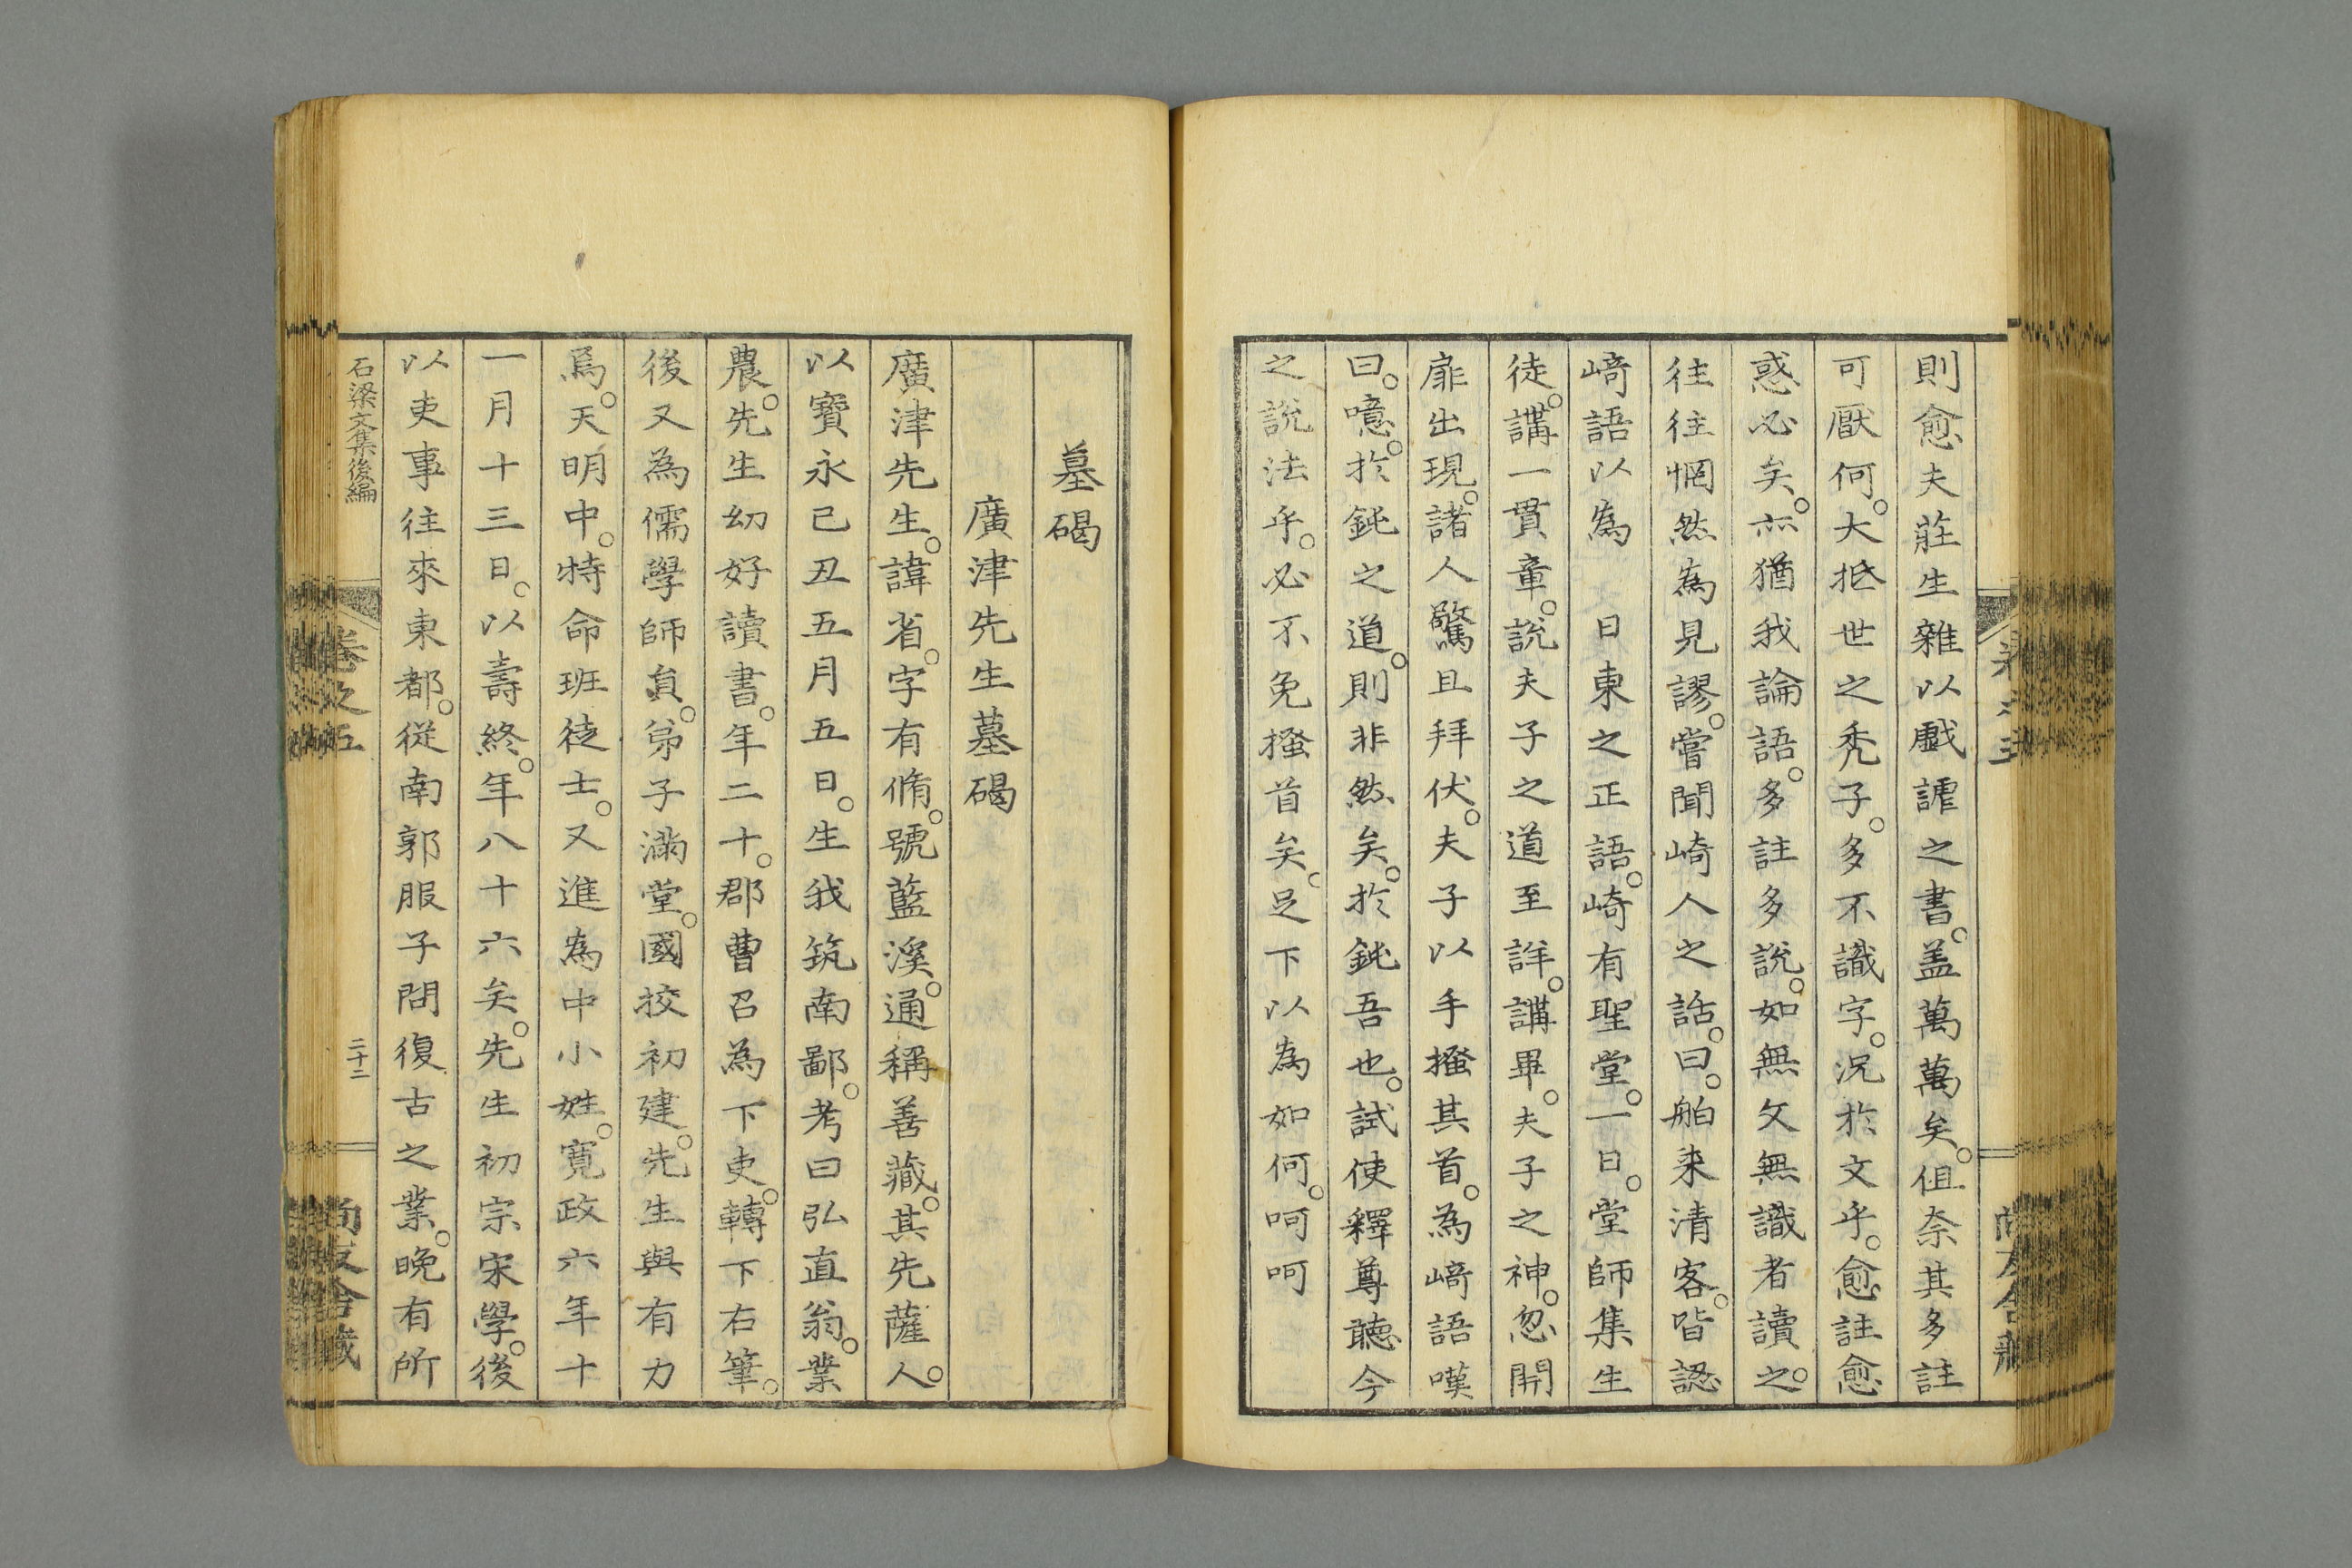 則愈夫莊生雜以戲謔之書。盖萬萬矣。但奈其多註
可厭何。大抵世之禿子。多不識字。況於文乎。愈註愈
惑必矣。亦猶我論語。多註多說。如無文無識者讀之。
往往惘然為見謬。嘗聞崎人之話。曰。舶来清客。皆認
﨑語以為　日東之正語。崎有聖堂。一日。堂師集生
徒。講一貫章。說夫子之道至詳。講畢。夫子之神。忽開
扉出現。諸人驚且拜伏。夫子以手搔其首。為﨑語嘆
曰。噫。於鈍之道。則非然矣。於鈍吾也。試使釋尊聽今
之說法乎。必不免搔首矣。足下以為如何。呵呵
墓碣
廣津先生墓碣
廣津先生。諱省。字有脩。號藍溪。通稱善藏。其先薩人。
以寶永己丑五月五日。生我筑南鄙。考曰弘直翁。業
農。先生幼好讀書。年二十。郡曹召為下吏。轉下右筆。
後又為儒學師負。弟子滿堂。國挍初建。先生與有力
焉。天明中。特命班徒士。又進為中小姓。寬政六年十
一月十三日。以壽終。年八十六矣。先生初宗宋學。後
以吏事往來東都。從南郭服子問復古之業。晚有所
石梁文集後編
卷之五
二十二
尚友舍藏